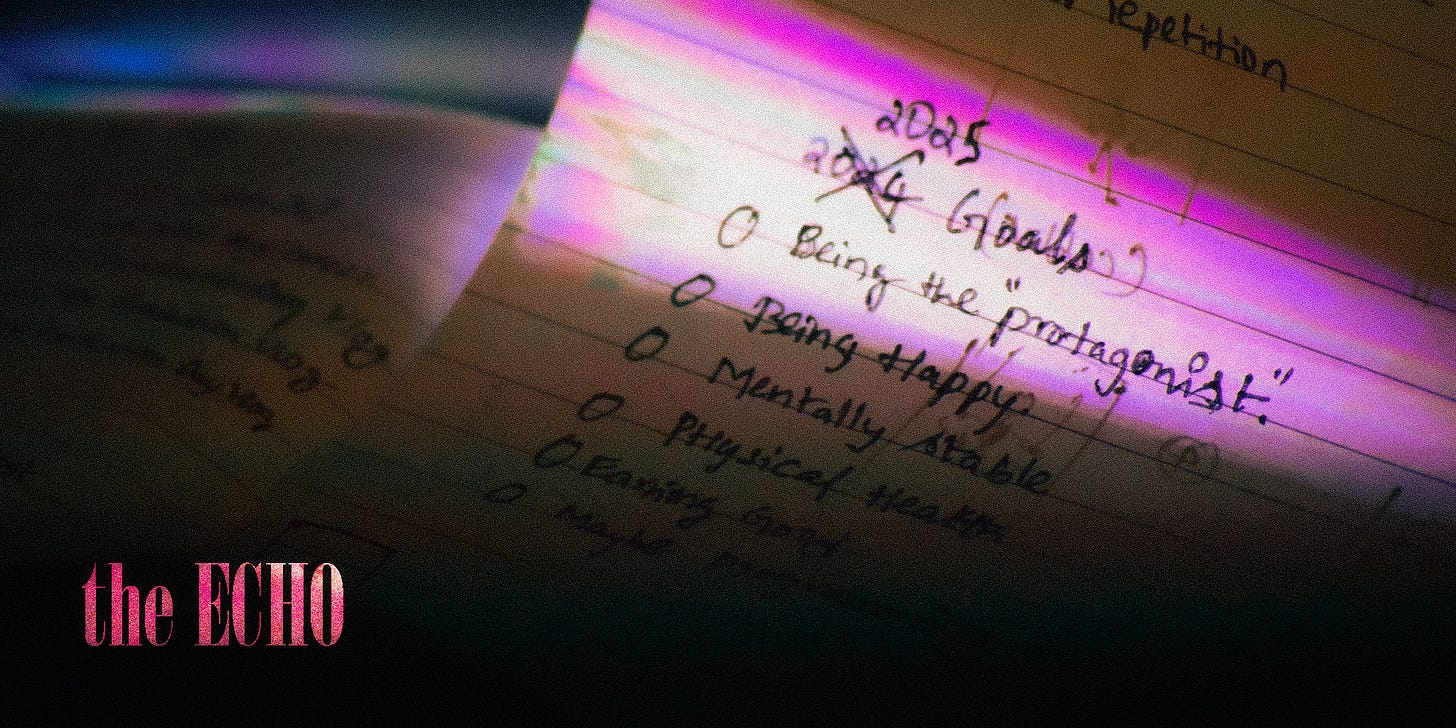 repetition
2025
2024 Goals
O Being the "protagonist."
O Being Happy.
O Mentally stable
O Physical Health
O Earning Good
O Maybe
the ECHO